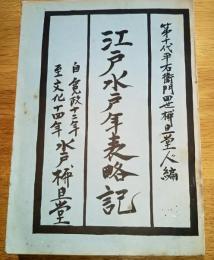 第十代平右衛門四世梅里堂人編
江戸水戸年表略記
自寛政十二年
至文化十四年
水戸、梅里堂